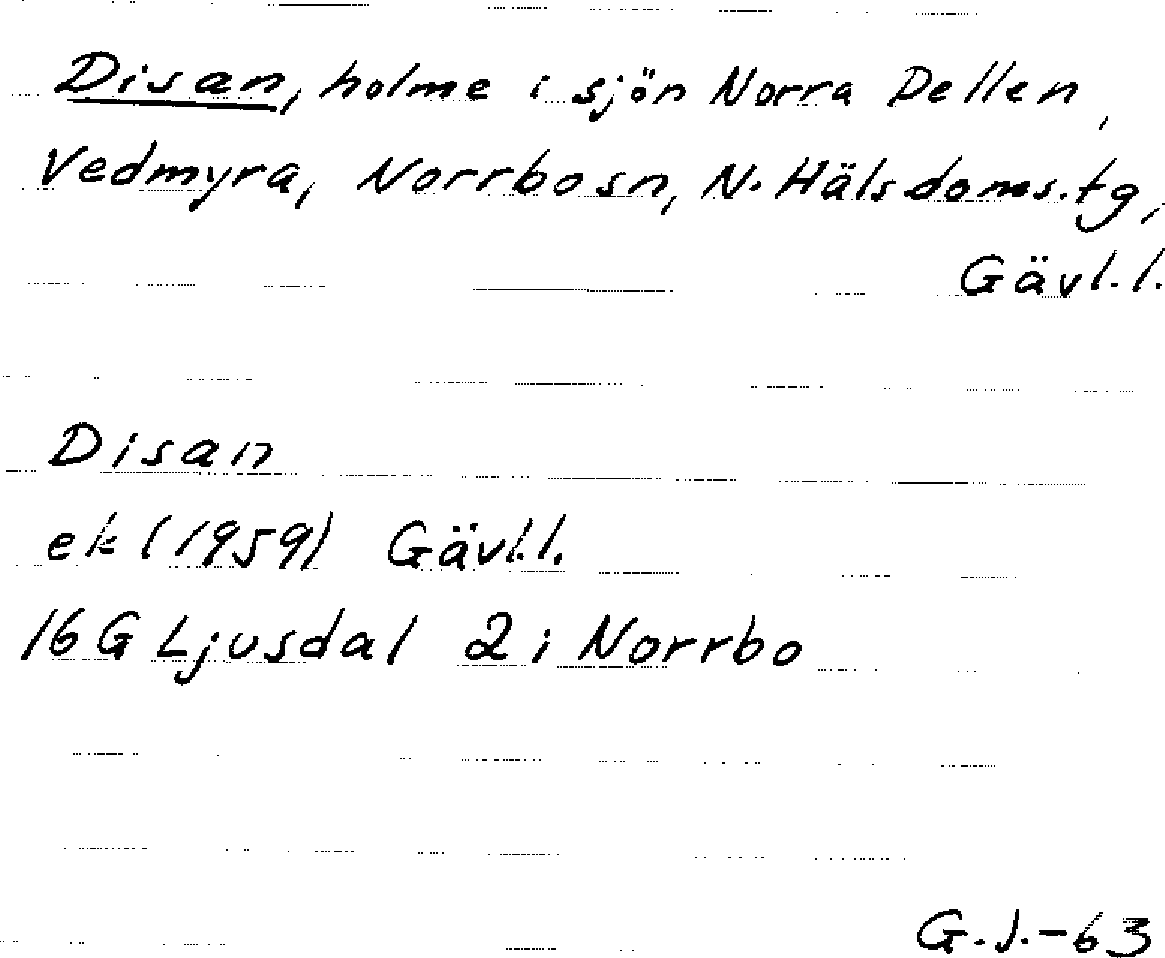 Disan, holme i sjön Norra Dellen,
Vedmyra, Norrbosn, N. Häls. doms.tg,
Gävl.l.
Disan
ek (1959) Gävl.l.
16 G Ljusdal 2 i Norrbo
G.J.-63